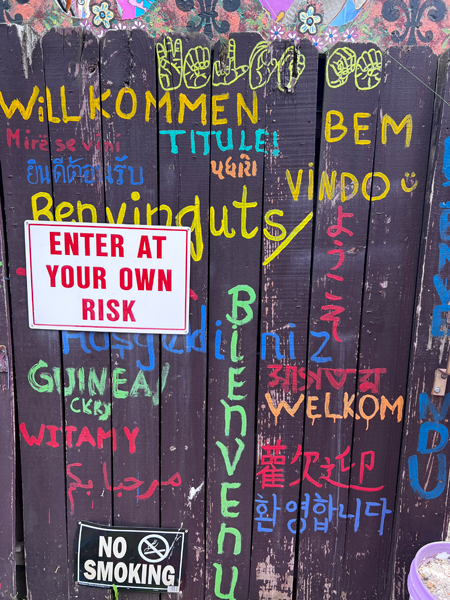 WiLLKOMMEN
Mirë se vini
TITULE!
BEM
VINDO
ยินดีต้อนรับ
Benvinguts
ENTER AT
YOUR OWN
RISK
ようこそ
Hoşgeldiniz
Bienvenu
WELKOM
WITAMY
مرحبا بكم
歡迎
환영합니다
NO
SMOKING